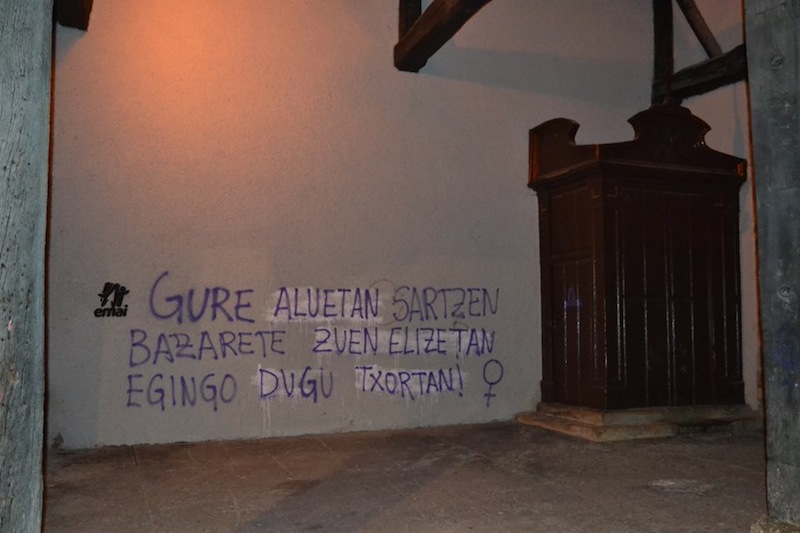 ernai
GURE ALUETAN SARTZEN
BAZARETE ZUEN ELIZETAN
EGINGO DUGU TXORTAN! ♀